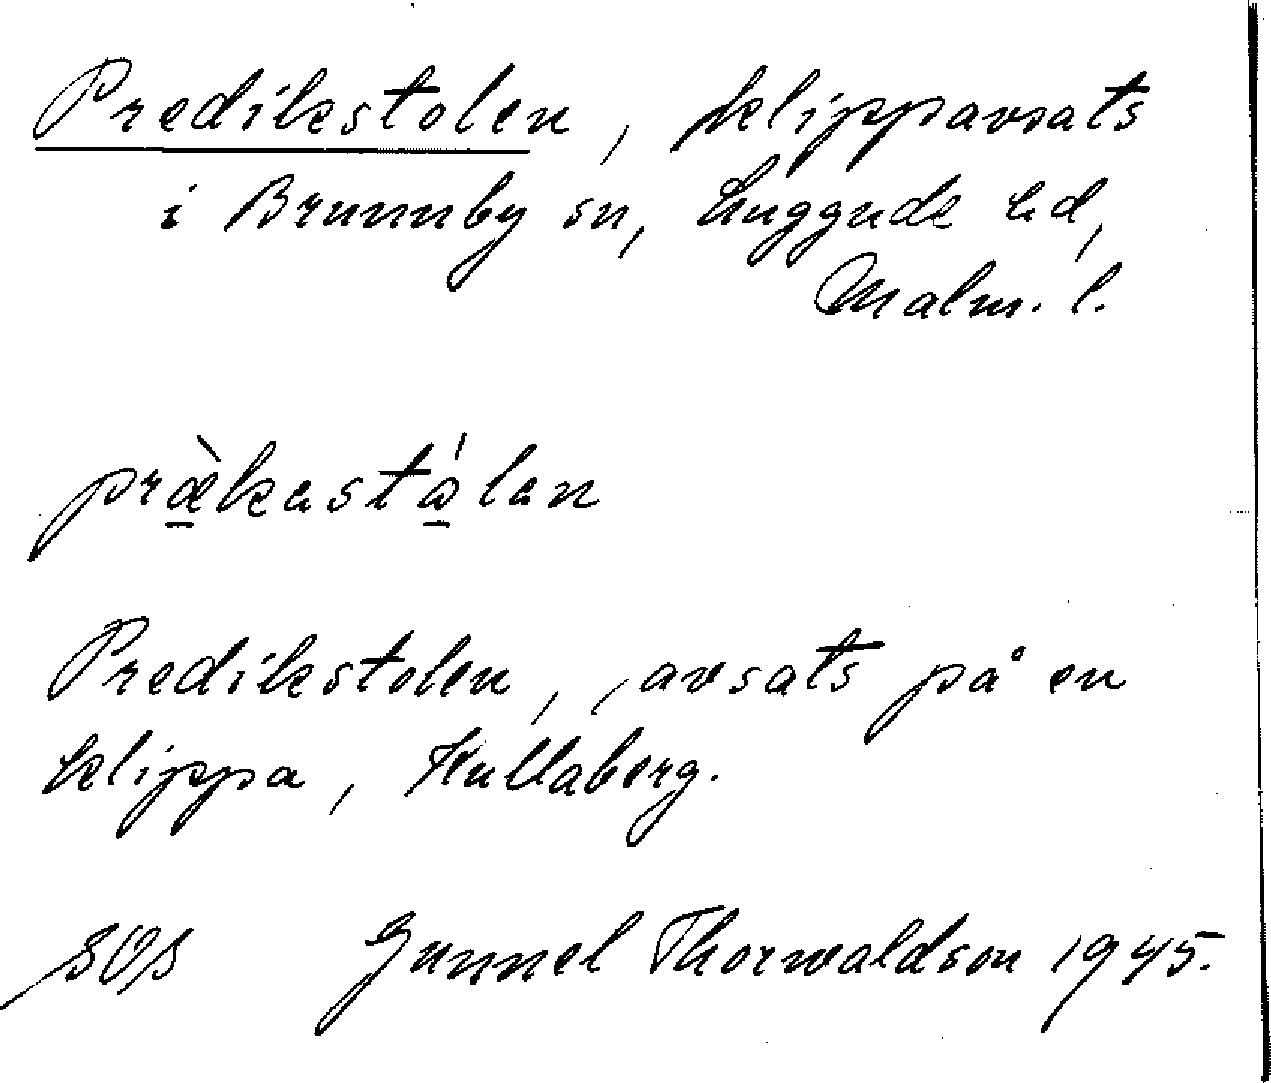 Predikstolen, klippavsats
i Brunnby sn, Luggude hd,
Malm. l.
præ̀kastålan
Predikstolen, avsats på en
klippa, Kullaberg.
Gunnel Thorwaldson 1945.